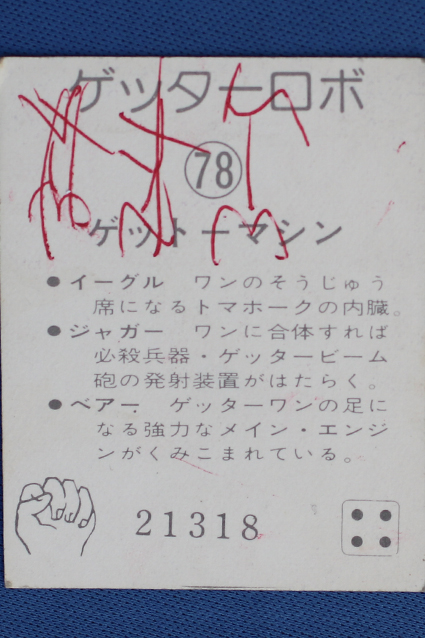 ゲッターロボ
78
ゲットーマシン
●イーグル　ワンのそうじゅう
席になるトマホークの内臓。
●ジャガー　ワンに合体すれば
必殺兵器・ゲッタービーム
砲の発射装置がはたらく。
●ベアー　ゲッターワンの足に
なる強力なメイン・エンジ
ンがくみこまれている。
21318